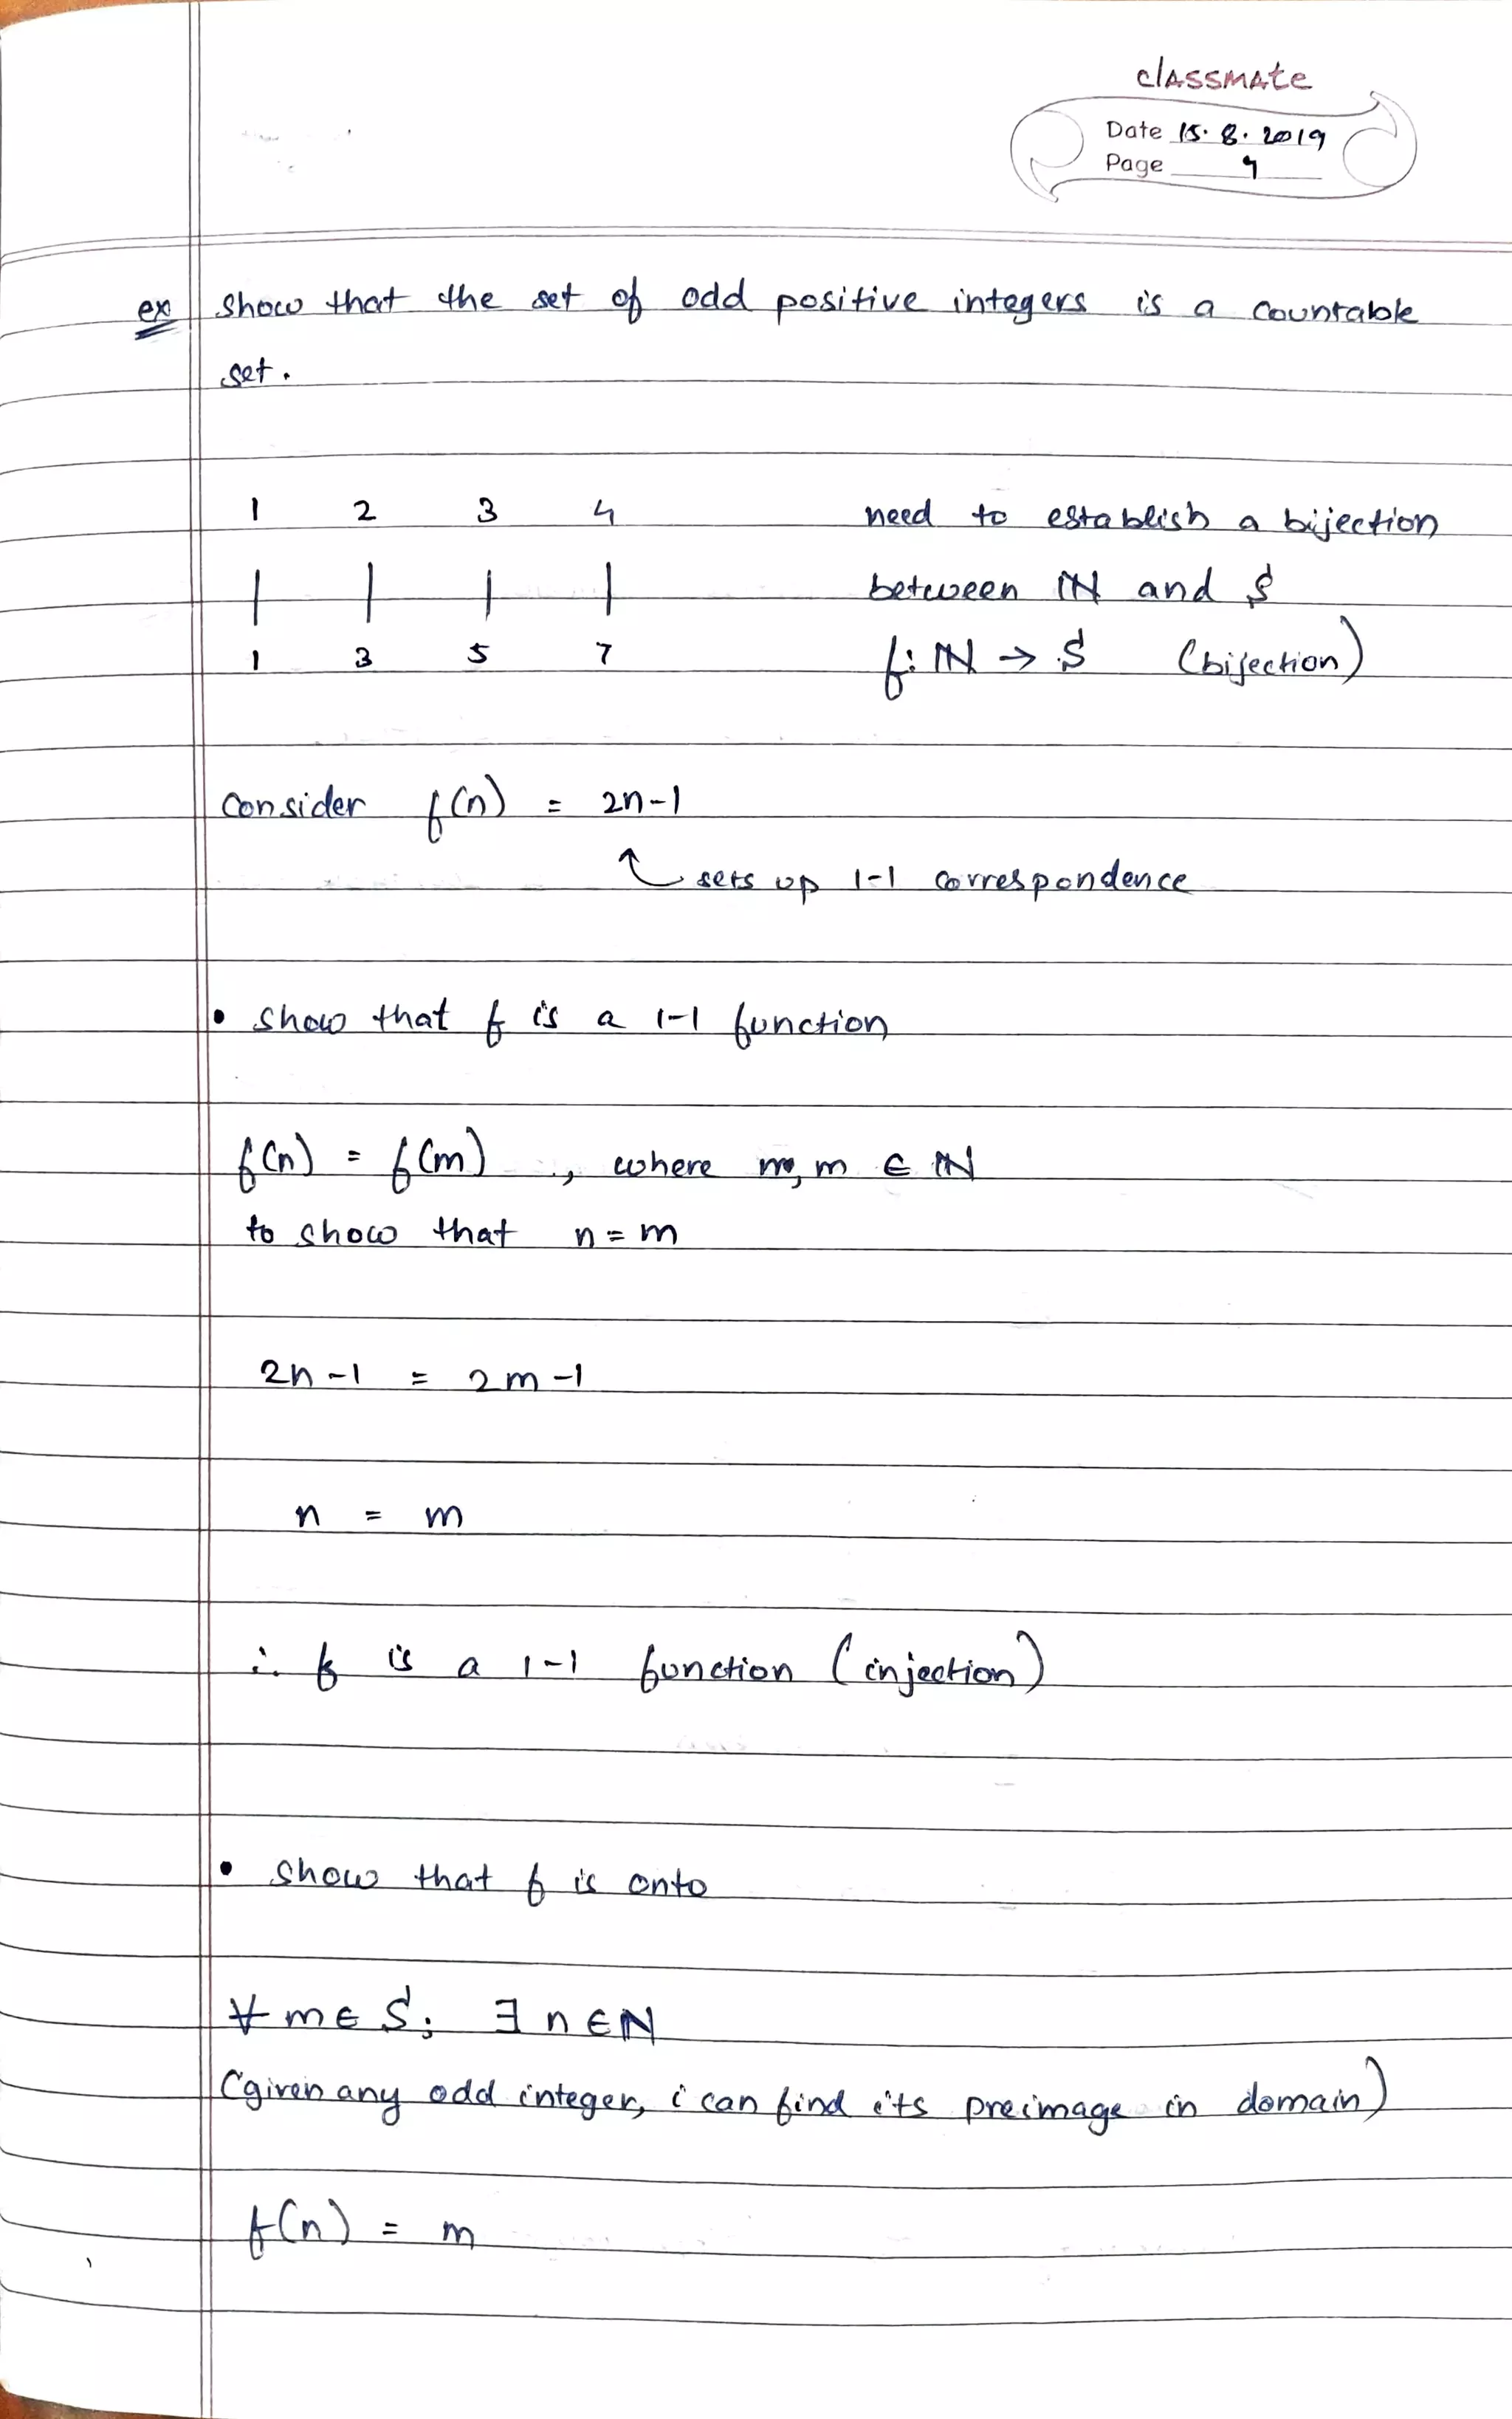 classmate
Date 15.8.2019
Page 9
ex show that the set of odd positive integers is a countable
set.
1 2 3 4 need to establish a bijection
| | | | between ℕ and S
1 3 5 7 f: ℕ → S (bijection)
Consider f(n) = 2n-1
↑ sets up 1-1 correspondence
• show that f is a 1-1 function
f(n) = f(m) , where m, m ∈ ℕ
to show that n = m
2n-1 = 2m-1
n = m
∴ f is a 1-1 function (injection)
• show that f is onto
∀ m ∈ S; ∃ n ∈ ℕ
(given any odd integer, i can find its preimage in domain)
f(n) = m